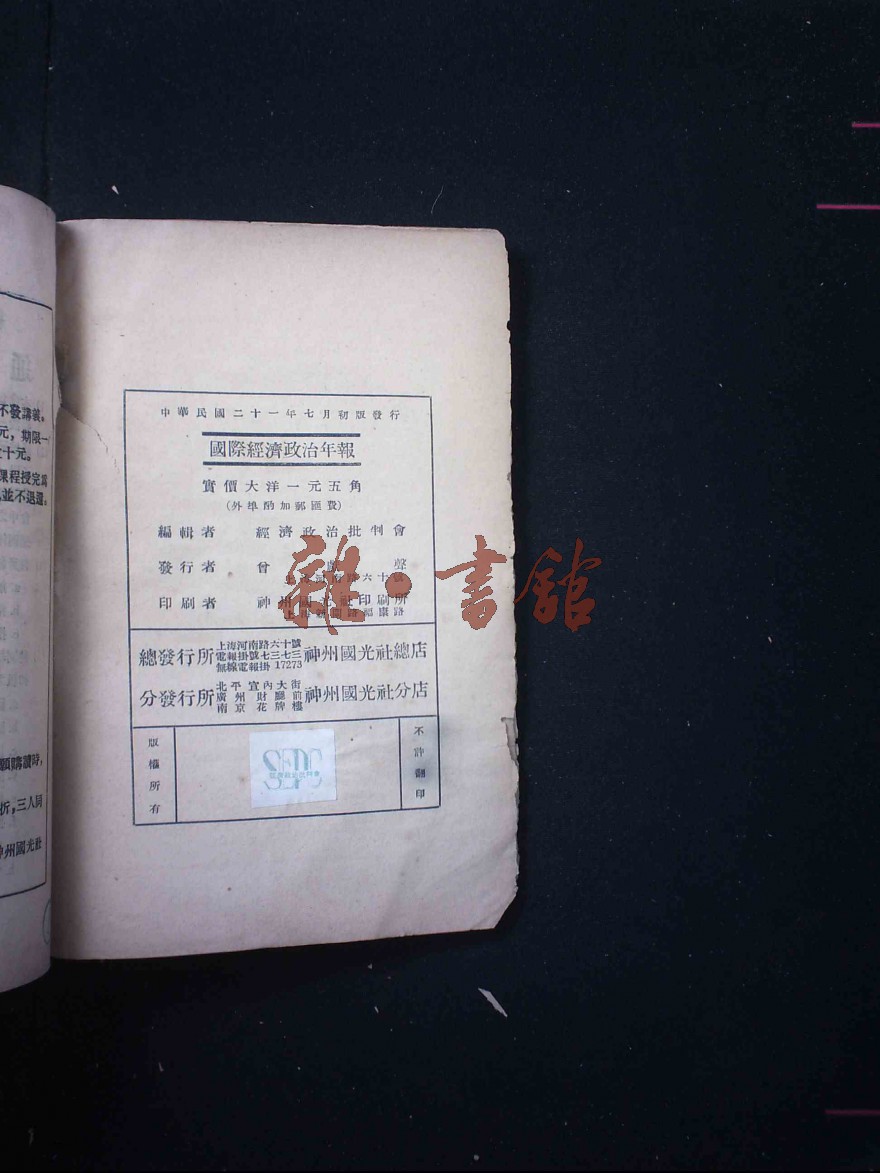 不發講義,
元，期限一
十元。
課程授完爲
並不退還。
時,
折，三人同
州國光社
中華民國二十一年七月初版發行
國際經濟政治年報
實價大洋一元五角
(外埠酌加郵匯費)
編輯者 經濟政治批判會
發行者 曾 聲
上海河南路六十號
印刷者 神州國光社印刷所
路
總發行所 上海河南路六十號 電報掛號七三七三 無線電報掛 17273 神州國光社總店
分發行所 北平宣內大街 廣州財廳前 南京花牌樓 神州國光社分店
版權所有
不許翻印
SEPC
雜·書館